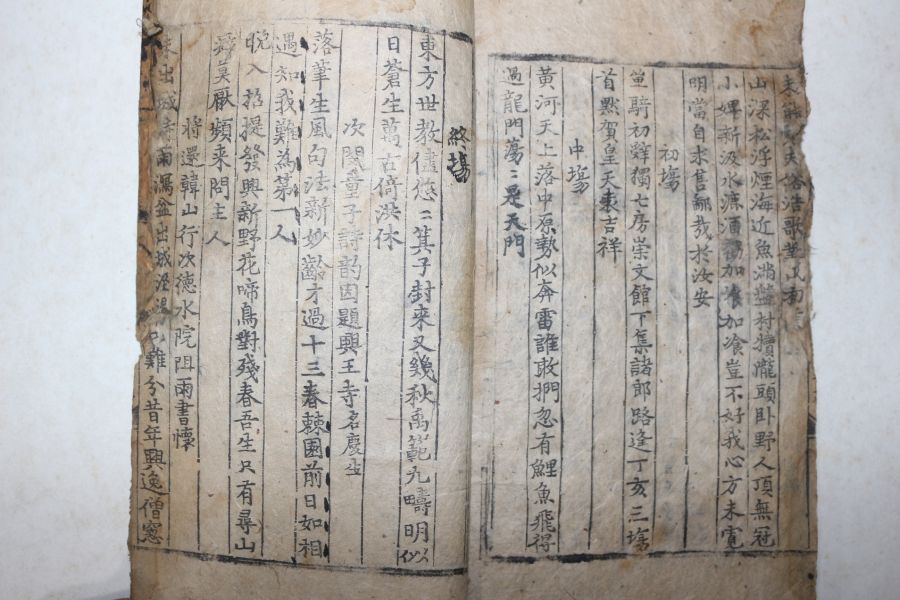 未能
山深松浮煙海近魚滿盤村犢隴頭臥野人頂無冠
小婢新汲水漉酒勸加飡加飡豈不好我心方未寬
明當自求售鄙哉於汝安
初塲
並騎初辭獨七房崇文館下集諸郎路逢丁亥三塲
首黙賀皇天表吉祥
中塲
黃河天上落中原勢似奔雷誰敢捫忽有鯉魚飛得
過龍門蕩〻是天門
終塲
東方世教儘悠〻箕子封來又幾秋禹範九疇明似
日蒼生萬古倚洪休
次閱童子詩韵因題興王寺名慶生
落筆生風句法新妙齡才過十三春棘圍前日如相
遇知我難為第一人
晩入招提發興新野花啼鳥對殘春吾生只有尋山
癖莫厭頻来問主人
將還韓山行次德水院阻雨書懷
未出城時雨瀉盆出城泥 難分昔年興逸僧窓